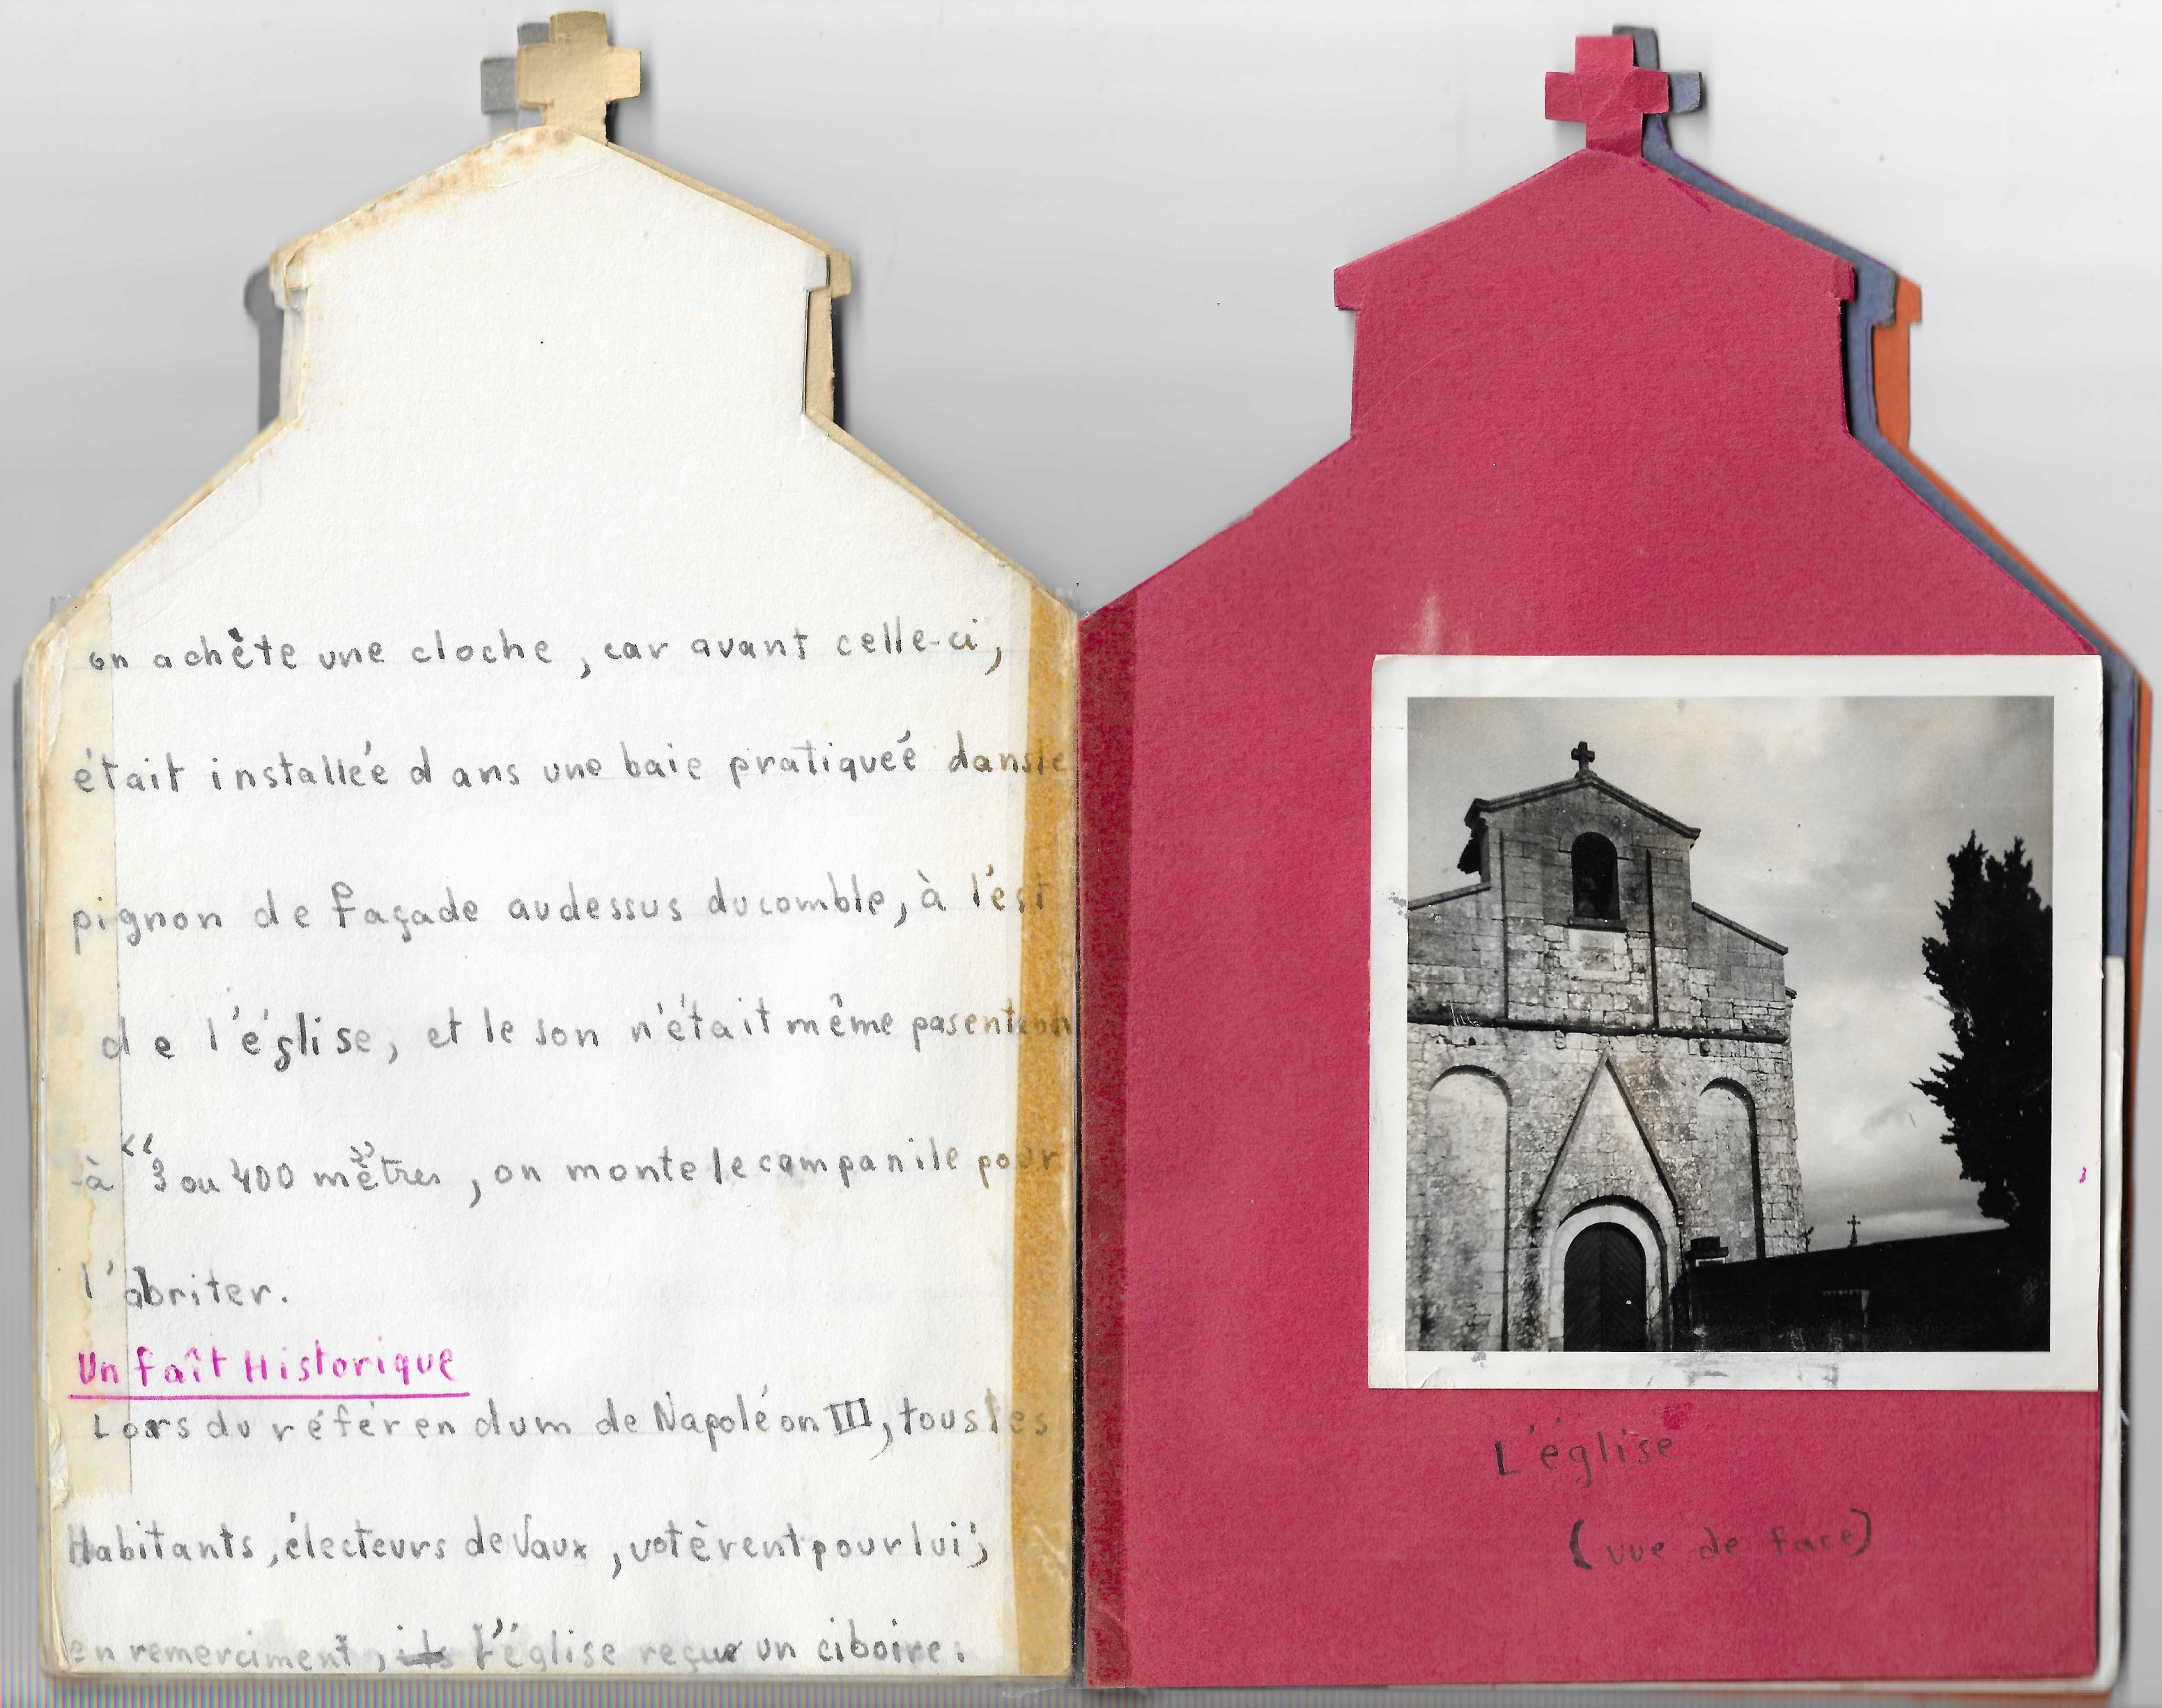 on achète une cloche, car avant celle-ci,
était installée dans une baie pratiqueé dans le
pignon de façade audessus du comble, à l'est
de l'église, et le son n'était même pas entendu
à "3 ou 400 mètres", on monte le campanile pour
l'abriter.
Un faît Historique
Lors du référendum de Napoléon III, tous les
Habitants, électeurs de Vaux, votèrent pour lui;
en remerciment, ils l'église reçue un ciboire.
L'église
(vue de face)